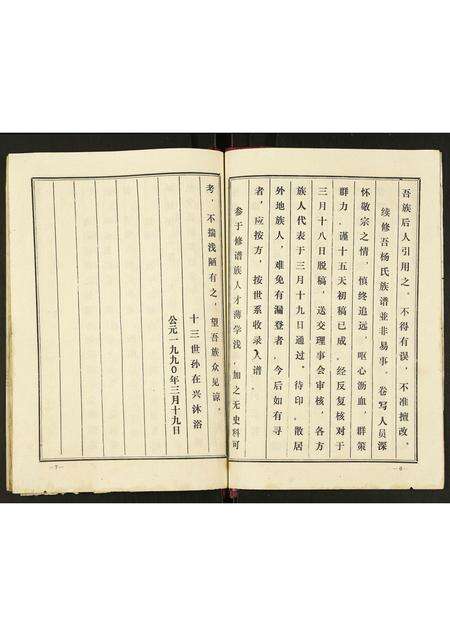 吾族后人引用之。不得有误，不准擅改。
续修吾杨氏族谱並非易事。卷写人员深
怀敬宗之情，慎终追远，呕心沥血，群策
群力，谨十五天初稿已成。经反复核对于
三月十八日脱稿，送交理事会审核，各方
族人代表于三月十九日通过。待印。散居
外地族人，难免有漏登者，今后如有寻
者，应按方，按世系收录入谱。
参于修谱族人才薄学浅，加之无史料可
—6—
考，不揣浅陋有之，望吾族众见谅。
十三世孙在兴沐浴
公元一九九0年三月十九日
—7—